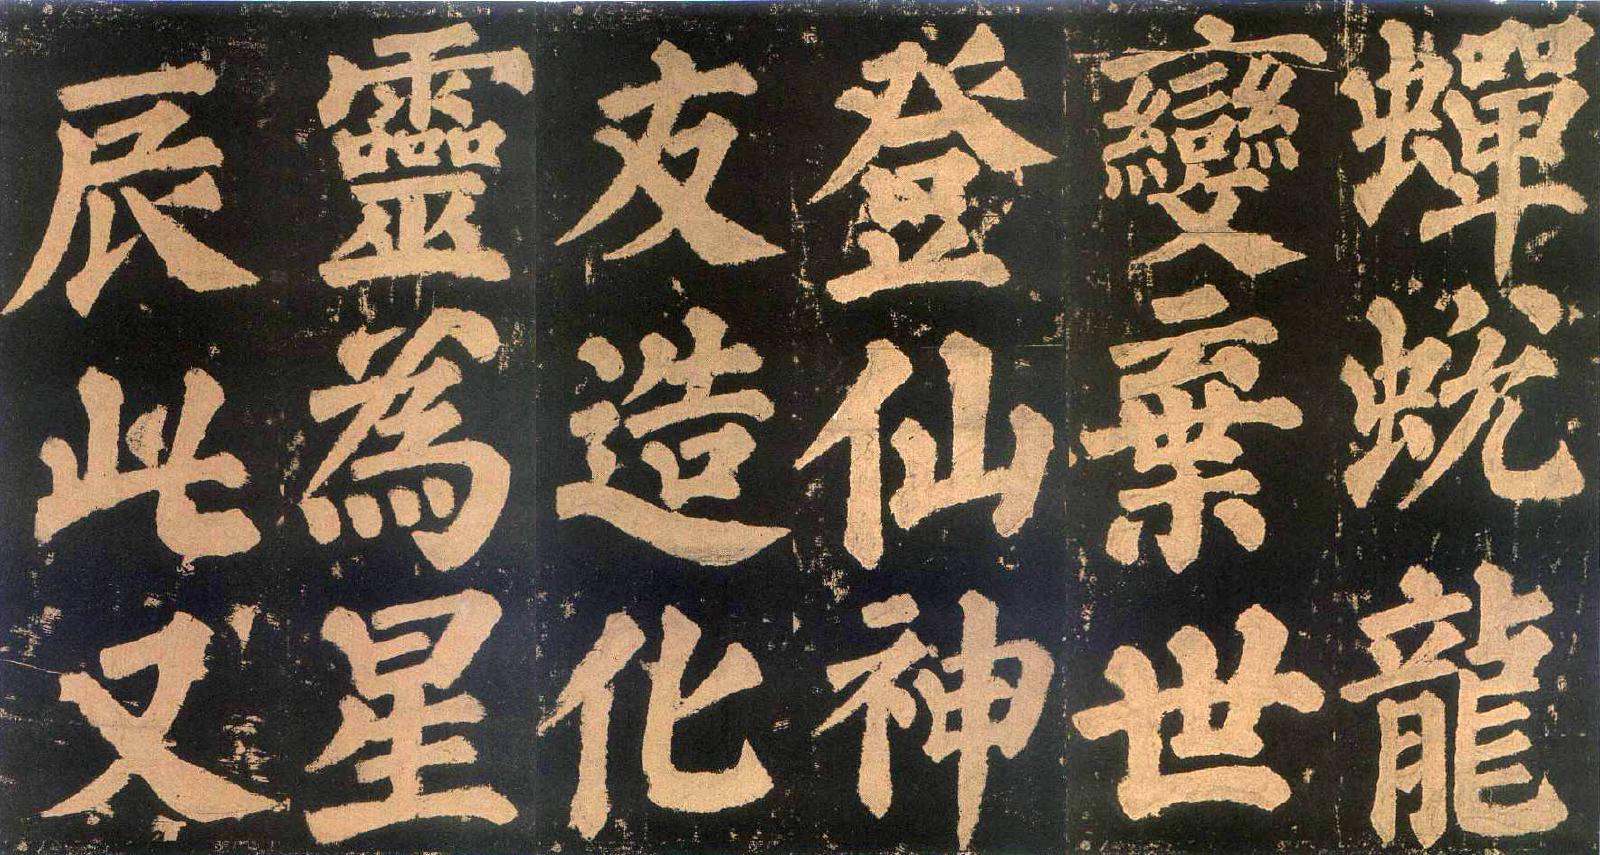 蟬蛻龍
變棄世
登仙神
友造化
靈為星
辰此又